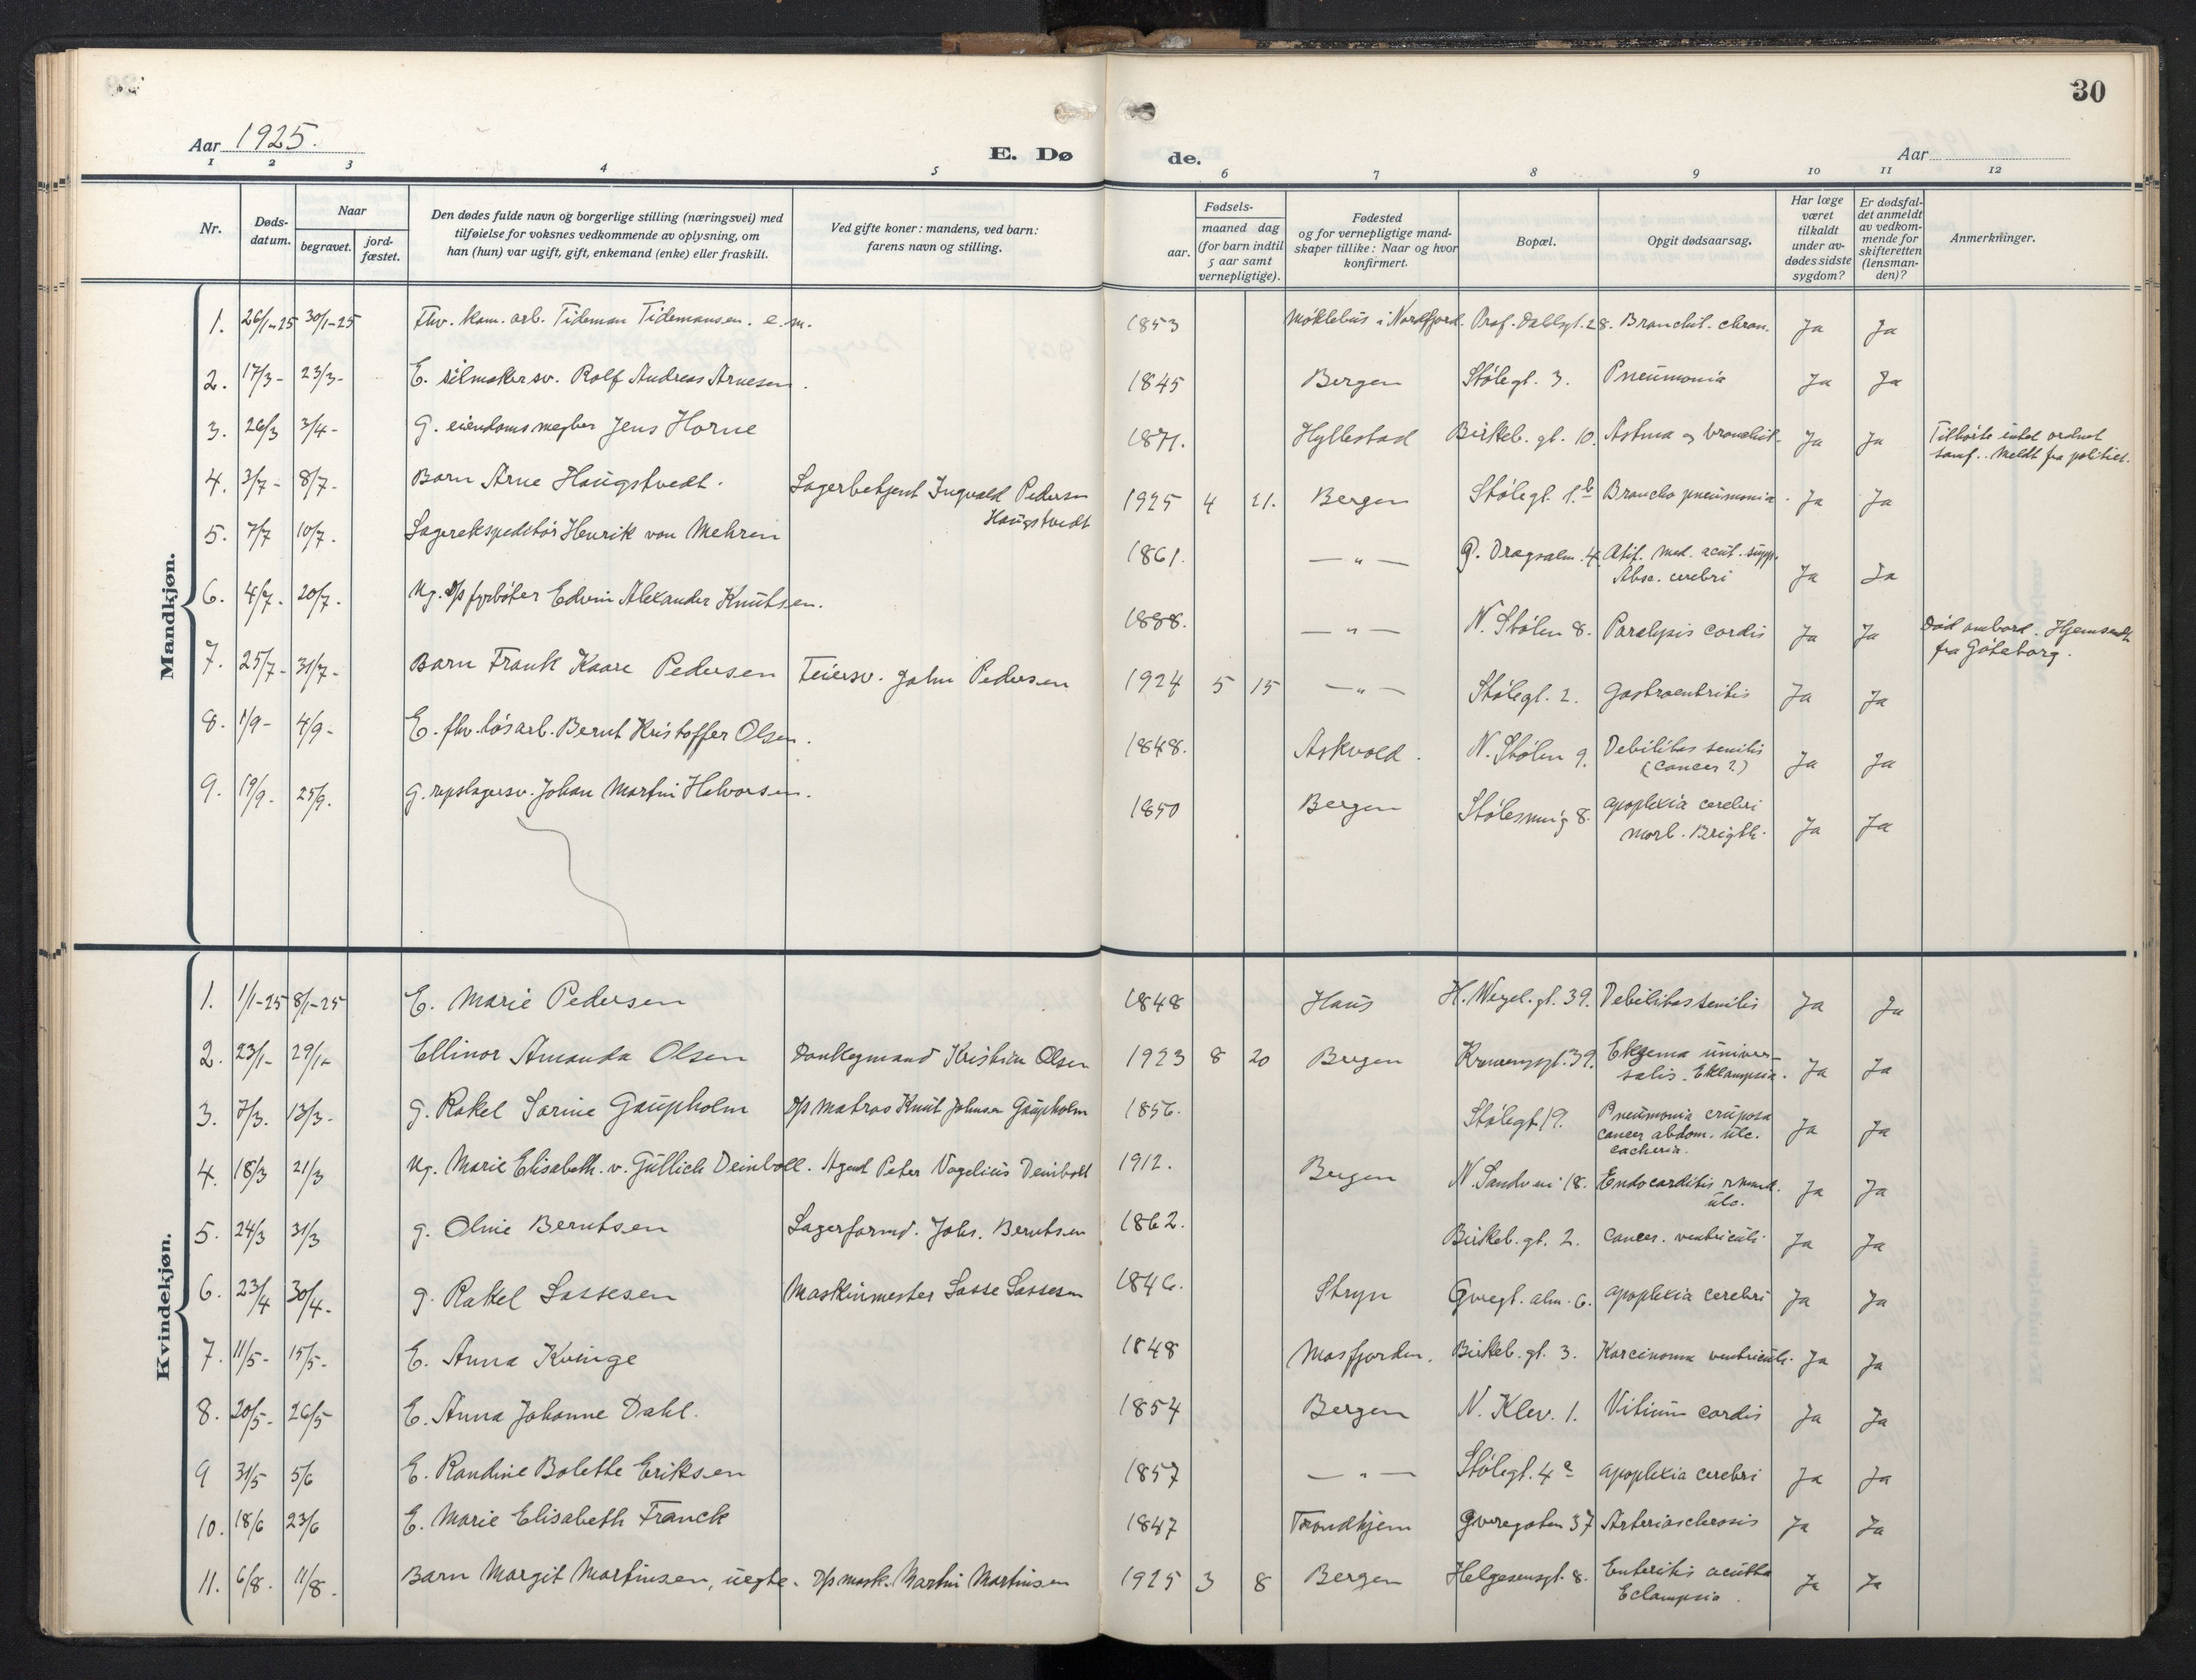 30
Aar 1925.
E. Døde.
Aar
1 2 3 4 5 6 7 8 9 10 11 12
Nr.
Døds-
datum.
Naar
begravet.
jord-
fæstet.
Den dødes fulde navn og borgerlige stilling (næringsvei) med
tilføielse for voksnes vedkommende av oplysning, om
han (hun) var ugift, gift, enkemand (enke) eller fraskilt.
Ved gifte koner: mandens, ved barn:
farens navn og stilling.
Fødsels-
aar.
maaned dag
(for barn indtil
5 aar samt
vernepligtige).
Fødested
og for vernepligtige mand-
skaper tillike: Naar og hvor
konfirmert.
Bopæl.
Opgit dødsaarsag.
Har læge
været
tilkaldt
under av-
dødes sidste
sygdom?
Er dødsfal-
det anmeldt
av vedkom-
mende for
skifteretten
(lensman-
den)?
Anmerkninger.
Mandkjøn.
1. 26/1-25 30/1-25 Fhv. kom. arb. Tideman Tidemansen. e.m. 1853 Myklebus i Nordfjord. Prof. Dahlsgt. 28. Bronchit. chron. Ja Ja
2. 17/3- 23/3- E. seilmakersv. Rolf Andreas Arnesen. 1845 Bergen Stølegt. 3. Pneumonia Ja Ja
3. 26/3 3/4- G. eiendomsmegler Jens Horne 1871. Hyllestad Birkeb. gt. 10. Astma og bronchit. Ja Ja Tilhørte intet ordnet
samf. Meldt fra politiet.
4. 3/7- 8/7- Barn Arne Haugstvedt. Lagerbetjent Ingvald Pedersen
Haugstvedt 1925 4 21. Bergen Stølegt. 1.b Broncho pneumonia. Ja Ja
5. 7/7 10/7. Lagerekspeditør Henrik von Mehren 1861. —"— P. Dragsalm. 4. Otit. med. acut. supp.
Absc. cerebri Ja Ja
6. 4/7. 20/7. Ug. D/s fyrbøter Edvin Alexander Knutsen. 1888. —"— N. Stølen 8. Paralysis cordis Ja Ja Død ombord. Hjemsendt
fra Gøteborg.
7. 25/7- 31/7- Barn Frank Kaare Pedersen Feiersv. John Pedersen 1924 5 15 —"— Stølegt. 2. Gastroentritis Ja Ja
8. 1/9- 4/9- E. fhv. løsarb. Bernt Kristoffer Olsen. 1848. Askvold. N. Stølen 9. Debilitas senilis
(Cancer?) Ja Ja
9. 19/9. 25/9. G. repslagersv. Johan Martin Halvorsen. 1850 Bergen Stølesmug 8. Apoplexia cerebri
morb. Brigth. Ja Ja
Kvindekjøn.
1. 1/1-25 8/1-25 E. Marie Pedersen 1848 Haus H. Wergel. gt. 39. Debilitas senilis Ja Ja
2. 23/1- 29/1- Ellinor Amanda Olsen Donkeymand Kristian Olsen 1923 8 20 Bergen 39. Ekzema univer-
salis. Eklampsia. Ja Ja
3. 7/3. 13/3- g. Rakel Sarine Gaupholm D/s Matros Knut Johnsen Gaupholm 1856. Stølegt. 19. Pneumonia cruposa
Cancer abdom. ulc.
cacheria. Ja Ja
4. 18/3 21/3 Ug. Marie Elisabeth. v. Güllich Deinboll. Agent Peter Vogelius Deinboll 1912. Bergen N. Sandvei 18. Endocarditis rheum.
ulc. Ja Ja
5. 24/3 31/3 g. Oline Berntsen Lagerformd. Johs. Berntsen 1862. Birkeb. gt. 2. Cancer. ventriculi. Ja Ja
6. 23/4 30/4. g. Rakel Lassesen Maskinmester Lasse Lassesen 1846. Stryn alm. 6. Apoplexia cerebri Ja Ja
7. 11/5- 15/5- E. Anna Kvinge 1848 Masfjorden. Birkeb. gt. 3. Karcinoma ventriculi. Ja Ja
8. 20/5- 26/5 E. Anna Johanne Dahl. 1854 Bergen N. Klev. 1. Vitium cordis Ja Ja
9 31/5 5/6 E. Randine Bolethe Eriksen 1857 —"— Stølegt. 4a Apoplexia cerebri Ja Ja
10. 18/6 23/6 E. Marie Elisabeth Franck 1847 Trondhjem Øvregaten 37 Arteriosclerosis Ja Ja
11. 6/8. 11/8. Barn Margit Martinsen, uegte. D/s mask. Martin Martinsen 1925 3 8 Bergen Helgesensgt. 8. Enteritis acutta
Eclampsia. Ja Ja